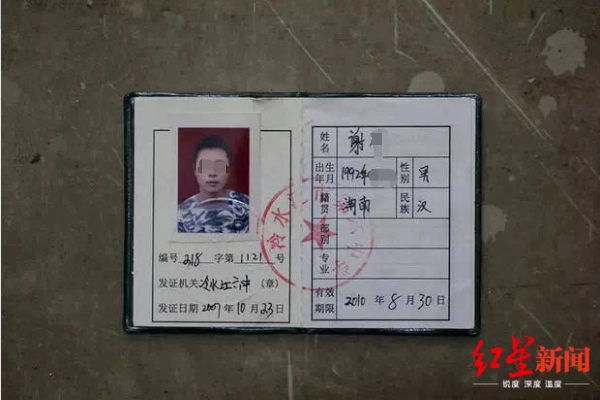 编号 218 字第 1121 号
发证机关 冷水江六中 (章)
发证日期 2007 年 10 月 23 日
姓名 谢
出生年月 1992年
性别 男
籍贯 湖南
民族 汉
部别
专业
有效期限 2010 年 8 月 30 日
冷水
红星新闻
锐度 深度 温度